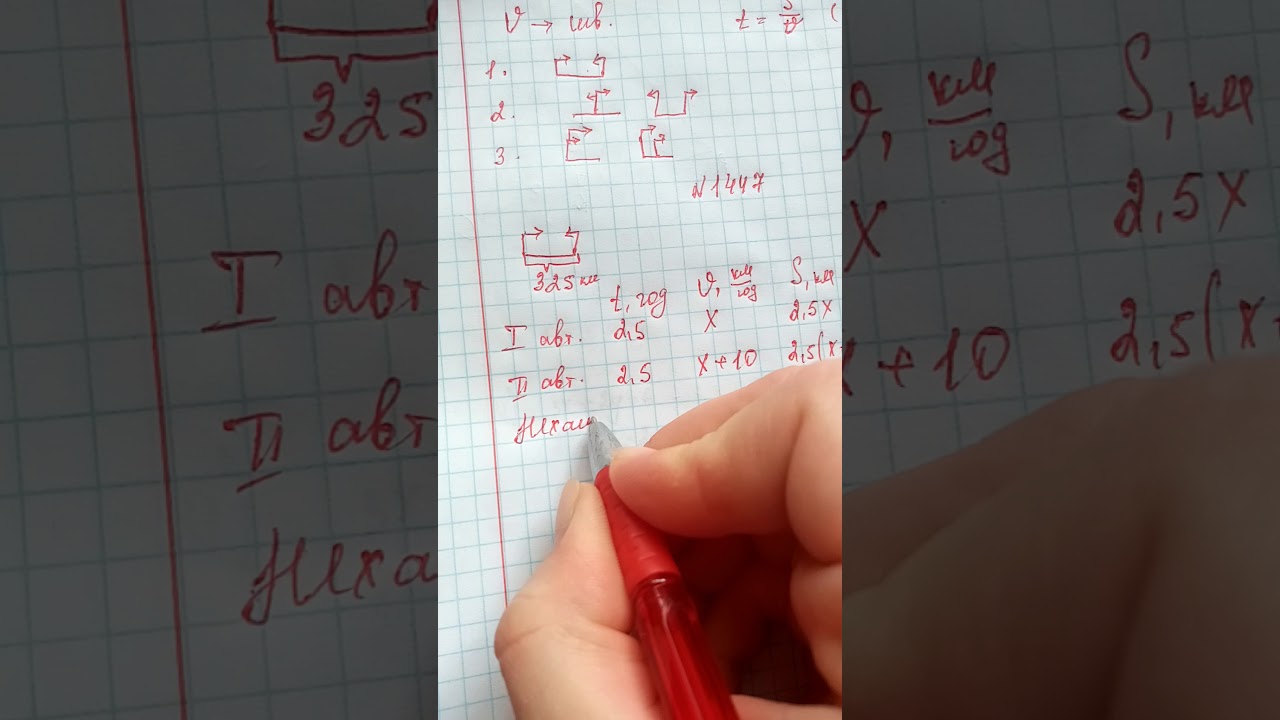 υ → шв. t = S/υ (
1.
2.
3.
N1447
325 км
t, год υ, км/год S, км
I авт. 2,5 x 2,5x
II авт. 2,5 x + 10 2,5(x+
Нехай